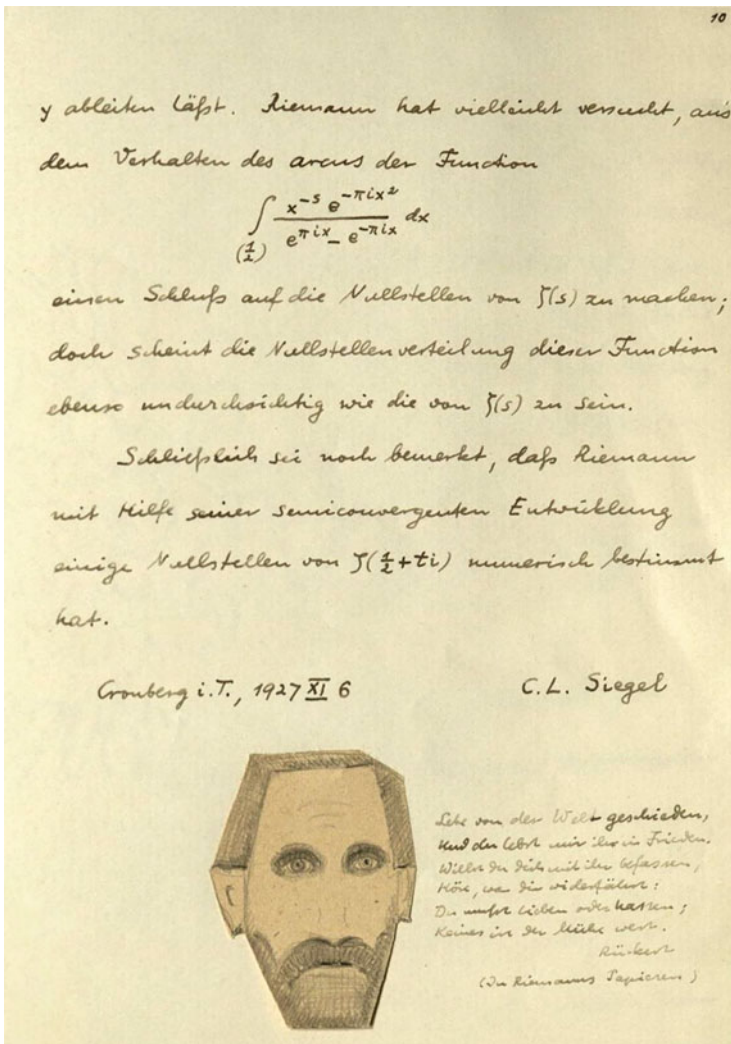 10
y ableiten läßt. Riemann hat vielleicht versucht, aus
dem Verhalten des arcus der Function
∫_(1/2) (x^{-s} e^{-πix²})/(e^{πix} - e^{-πix}) dx
einen Schluß auf die Nullstellen von ζ(s) zu machen;
doch scheint die Nullstellenverteilung dieser Function
ebenso undurchsichtig wie die von ζ(s) zu sein.
Schließlich sei noch bemerkt, daß Riemann
mit Hilfe seiner semiconvergenten Entwicklung
einige Nullstellen von ζ(1/2+ti) numerisch bestimmt
hat.
Cronberg i.T., 1927 XI 6
C.L. Siegel
Lebe von der Welt geschieden,
Und du lebst mir ihr in Frieden.
Willst du dich mit ihr befassen,
Höre, was dir widerfährt:
Du mußt lieben oder hassen;
Keines ist der Mühe wert.
Rückert
(In Riemanns Papieren)